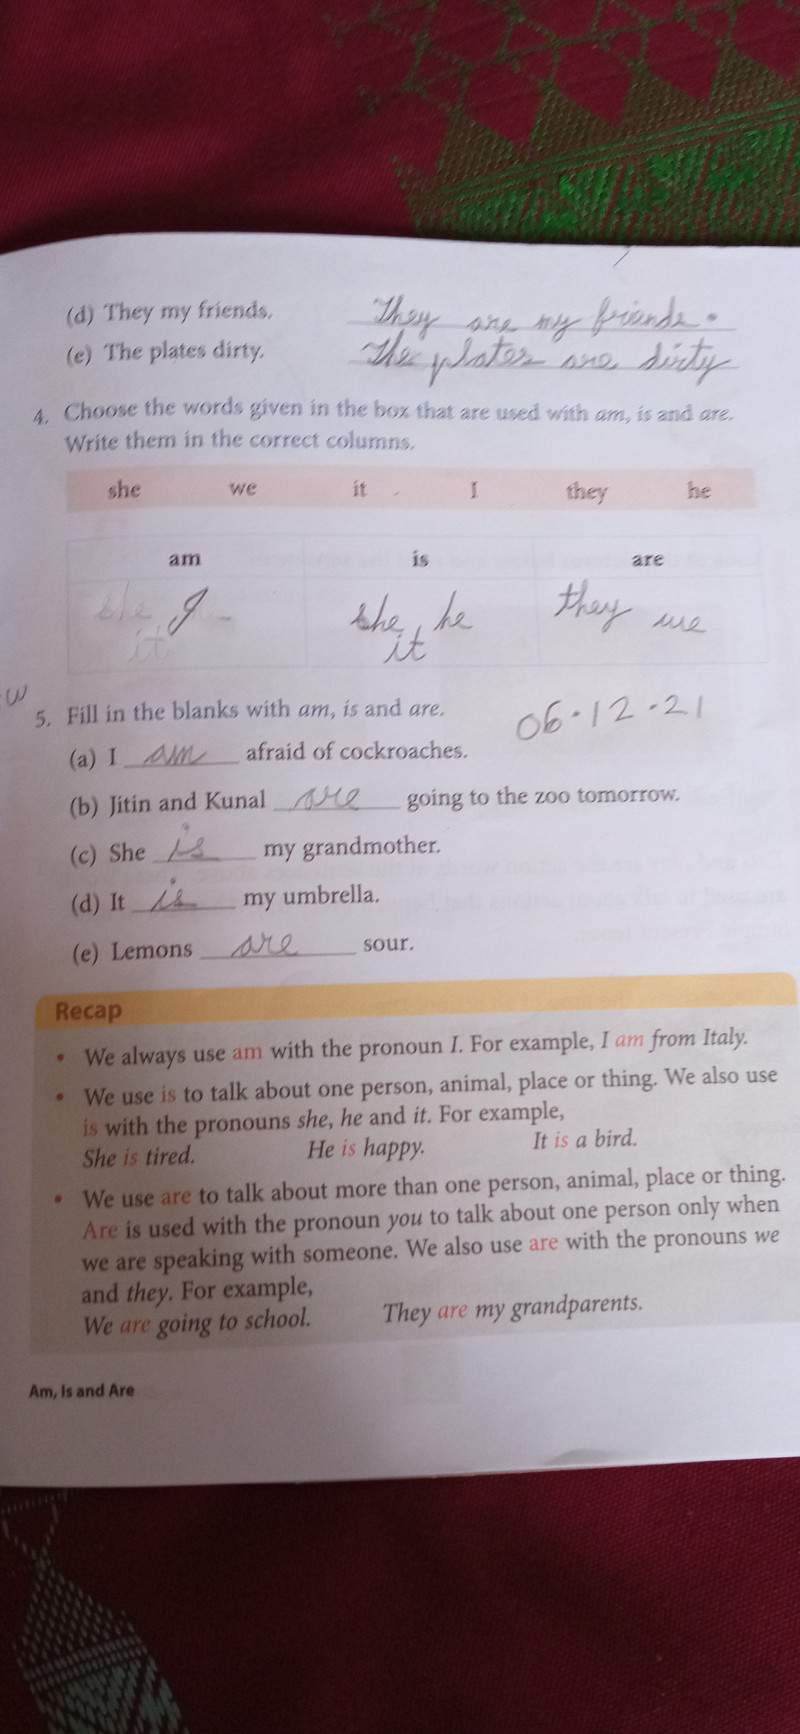 (d) They my friends. They are my friends.
(e) The plates dirty. The plates are dirty
4. Choose the words given in the box that are used with am, is and are.
Write them in the correct columns.
she we it I they he
am is are
she I they we
she, he
it it
w
5. Fill in the blanks with am, is and are. 06.12.21
(a) I am afraid of cockroaches.
(b) Jitin and Kunal are going to the zoo tomorrow.
(c) She is my grandmother.
(d) It is my umbrella.
(e) Lemons are sour.
Recap
• We always use am with the pronoun I. For example, I am from Italy.
• We use is to talk about one person, animal, place or thing. We also use
is with the pronouns she, he and it. For example,
She is tired. He is happy. It is a bird.
• We use are to talk about more than one person, animal, place or thing.
Are is used with the pronoun you to talk about one person only when
we are speaking with someone. We also use are with the pronouns we
and they. For example,
We are going to school. They are my grandparents.
Am, Is and Are